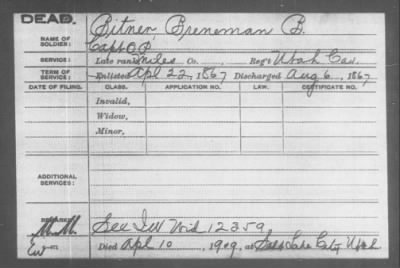 DEAD.
NAME OF SOLDIER: Bitner, Breneman B.
Capt O.P.
SERVICE: Late rank Miles Co. Reg't Utah Cav.
TERM OF SERVICE: Enlisted Apl 22, 1867 Discharged Aug 6, 1867
DATE OF FILING. CLASS. APPLICATION NO. LAW. CERTIFICATE NO.
Invalid,
Widow,
Minor,
ADDITIONAL SERVICES:
REMARKS: See Wid 12259
Died Apl 10, 1909, at Salt Lake City Utah